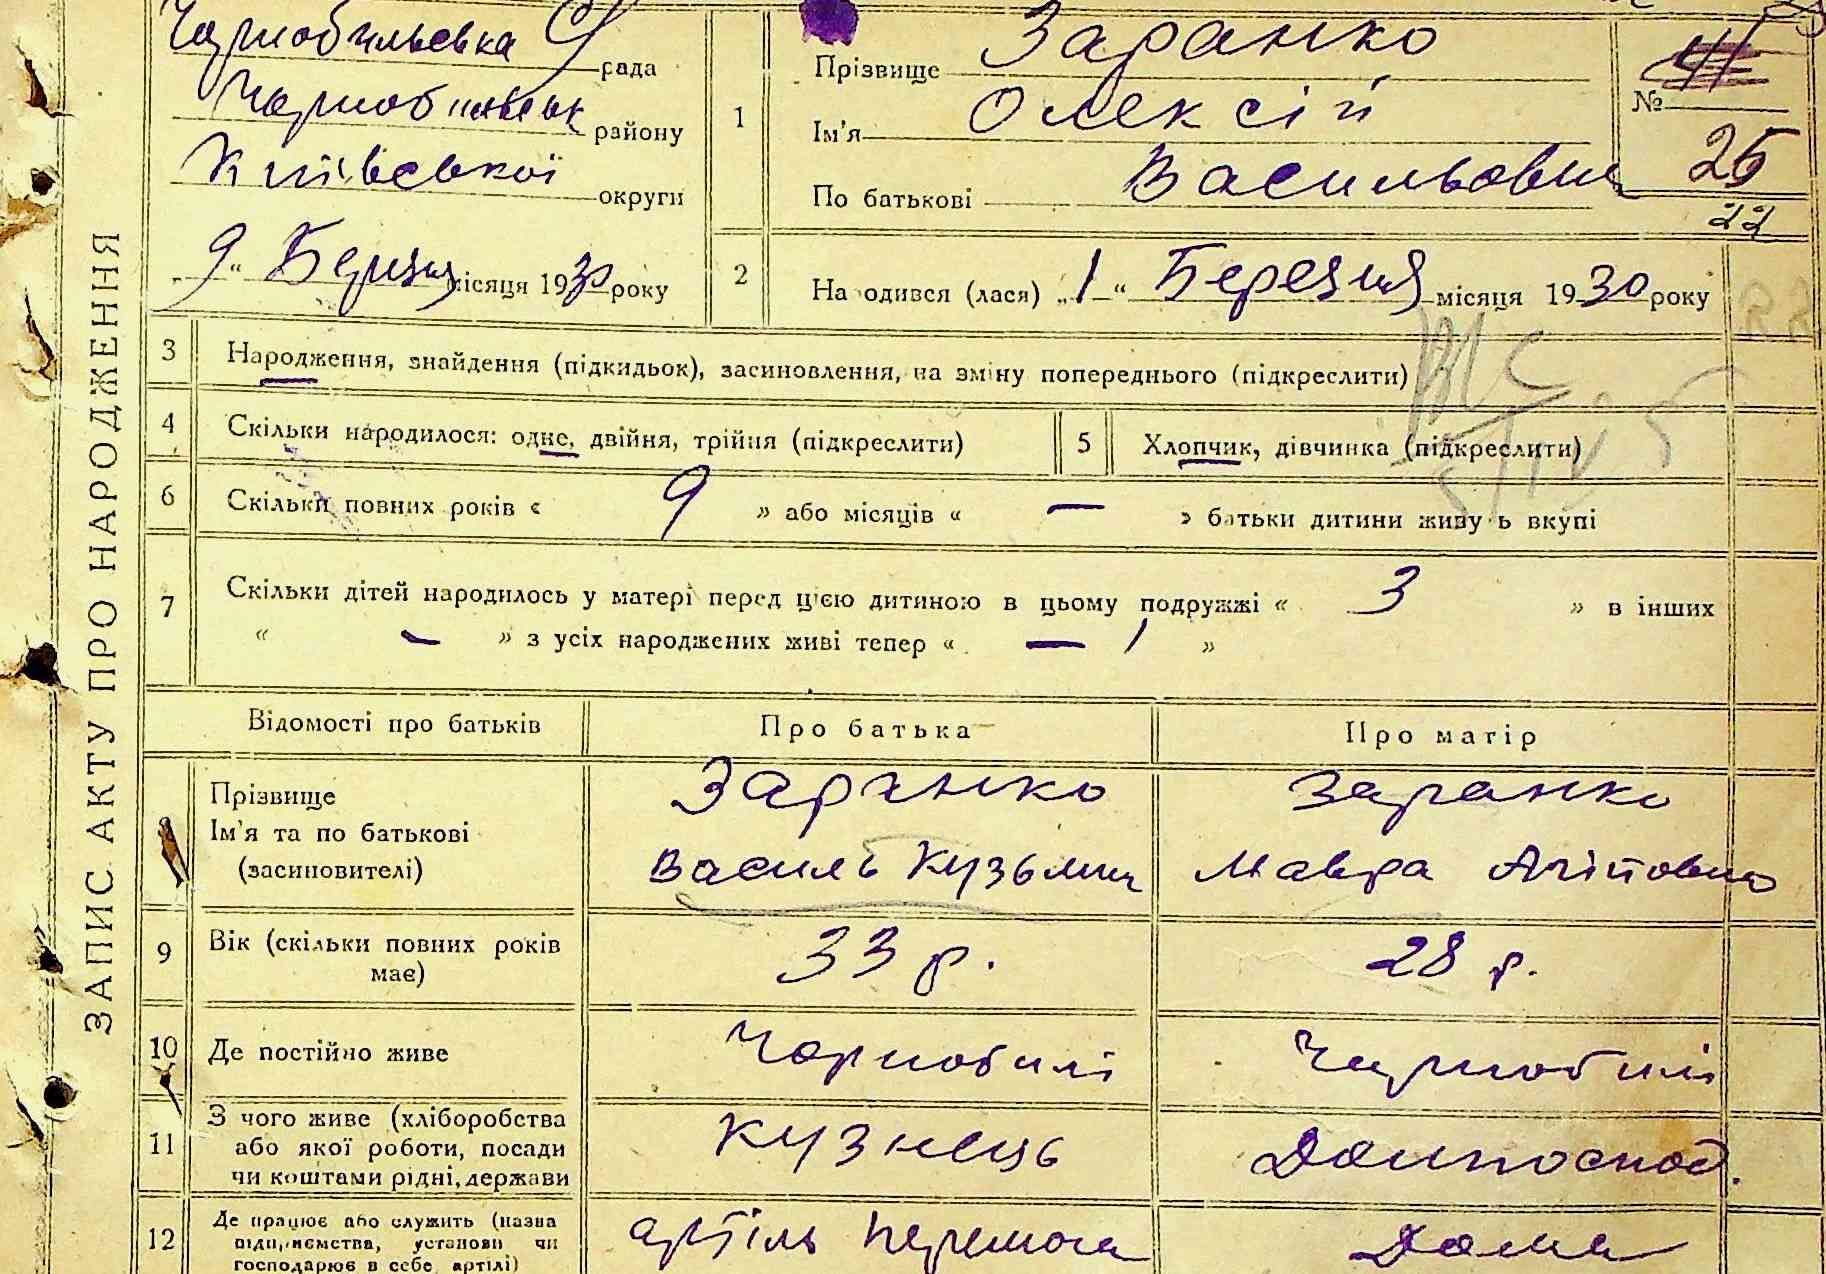 ЗАПИС АКТУ ПРО НАРОДЖЕННЯ
рада
району
Київської округи
„9“ Березня місяця 1930 року
1
Прізвище Заранко
Ім'я Олексій
По батькові Васильович
№
25
22
2
На одився (лася) „1“ Березня місяця 1930 року
3
Народження, знайдення (підкидьок), засиновлення, на зміну попереднього (підкреслити)
4
Скільки народилося: одне, двійня, трійня (підкреслити)
5
Хлопчик, дівчинка (підкреслити)
6
Скільки повних років « 9 » або місяців « — » батьки дитини живу ь вкупі
7
Скільки дітей народилось у матері перед цією дитиною в цьому подружжі « 3 » в інших
« — » з усіх народжених живі тепер « — 1 »
Відомості про батьків
Про батька
Про матір
Прізвище
Ім'я та по батькові
(засиновителі)
Заранко
Василь Кузьмич
Заранко
Мавра
9
Вік (скільки повних років
має)
33 р.
28 р.
10
Де постійно живе
Чорнобилі
Чорнобилі
11
З чого живе (хліборобства
або якої роботи, посади
чи коштами рідні, держави
Кузнець
Домгоспод.
12
Де працює або служить (назва
підприємства, установи чи
господарює в себе, артілі)
артіль Перемога
Дома